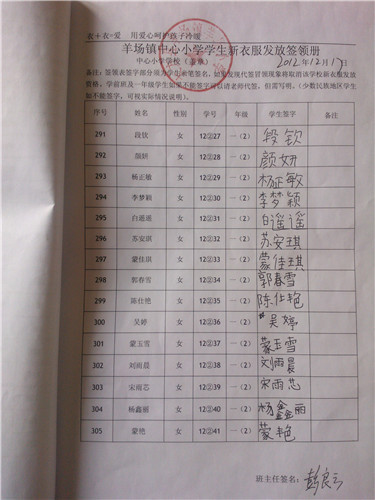 衣+衣=爱 用爱心呵护孩子冷暖
羊场镇中心小学学生新衣服发放签领册
中心小学学校（盖章） 2012年12月17日
备注：签领表签字部分须为学生亲笔签名，如若发现代签冒领现象将取消该学校新衣服发放
资格。学前班及一年级学生如果不能签字可以请老师代签，但需写明。（少数民族地区学生
如不能签字，可视实际情况说明）。
序号 姓名 性别 学号 年级 学生签字 备注
291 段钦 女 12②27 一（2） 段钦
292 颜妍 女 12②28 一（2） 颜妍
293 杨正敏 女 12②29 一（2） 杨正敏
294 李梦颖 女 12②30 一（2） 李梦颖
295 白遥遥 女 12②31 一（2） 白遥遥
296 苏安琪 女 12②32 一（2） 苏安琪
297 蒙佳琪 女 12②33 一（2） 蒙佳琪
298 郭春雪 女 12②34 一（2） 郭春雪
299 陈仕艳 女 12②35 一（2） 陈仕艳
300 吴婷 女 12②36 一（2） 吴婷
301 蒙玉雪 女 12②37 一（2） 蒙玉雪
302 刘雨晨 女 12②38 一（2） 刘雨晨
303 宋雨芯 女 12②39 一（2） 宋雨芯
304 杨鑫丽 女 12②40 一（2） 杨鑫丽
305 蒙艳 女 12②41 一（2） 蒙艳
班主任签名：